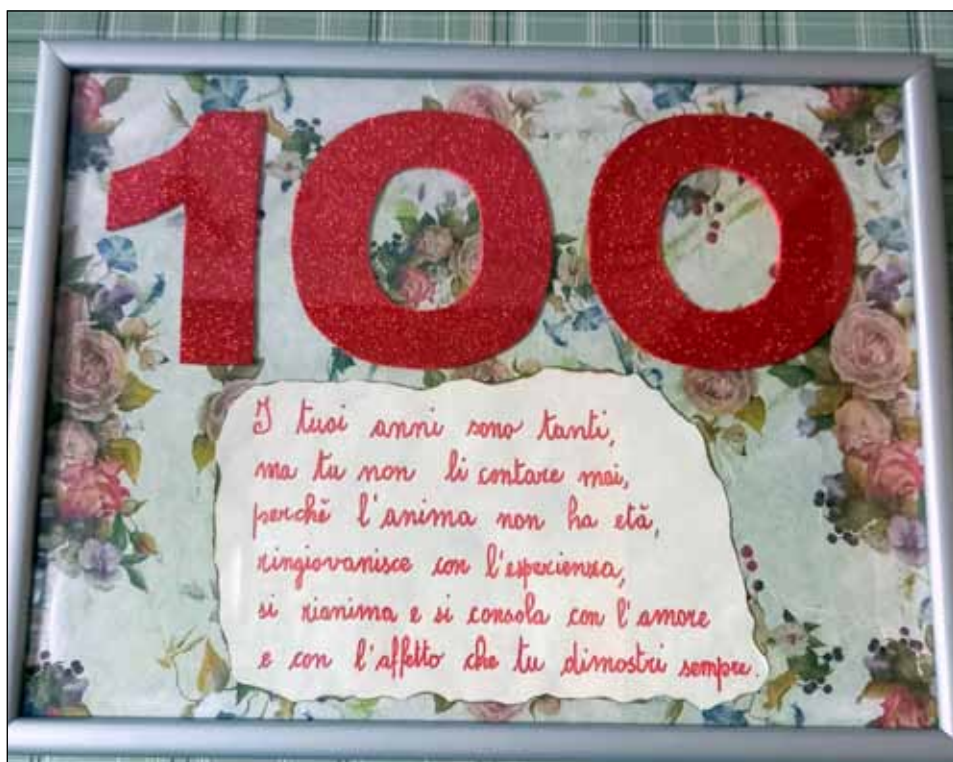 100
I tuoi anni sono tanti,
ma tu non li contare mai,
perchè l'anima non ha età,
ringiovanisce con l'esperienza,
si rianima e si consola con l'amore
e con l'affetto che tu dimostri sempre.